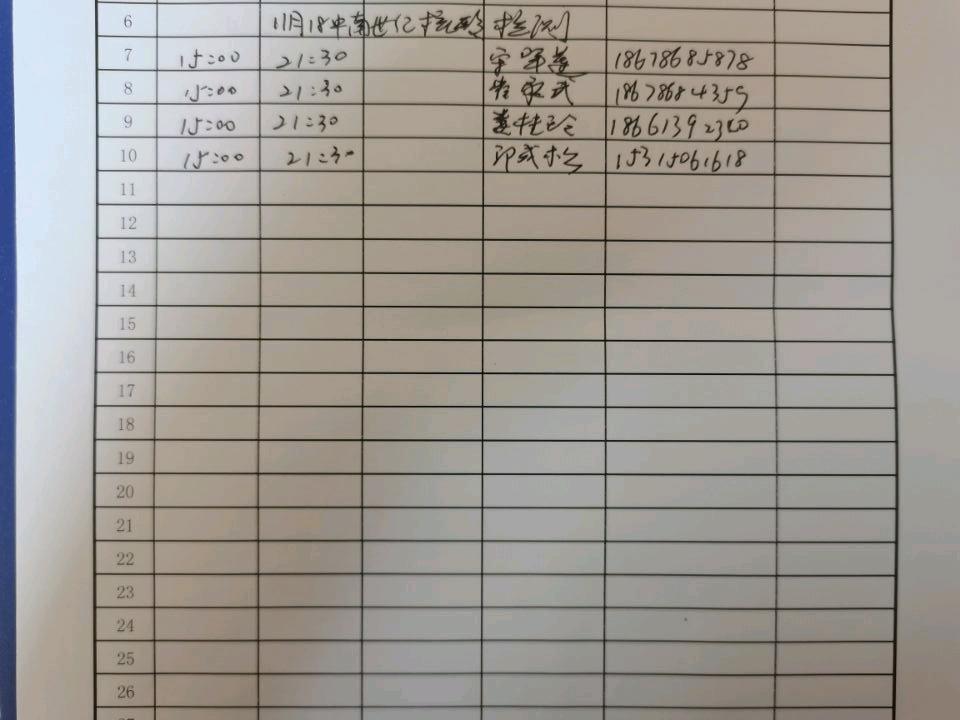 6 11月18中南世纪核酸检测
7 15:00 21:30 18678685878
8 15:00 21:30 18678684359
9 15:00 21:30 18661392320
10 15:00 21:30 印成松 15315061618
11
12
13
14
15
16
17
18
19
20
21
22
23
24
25
26